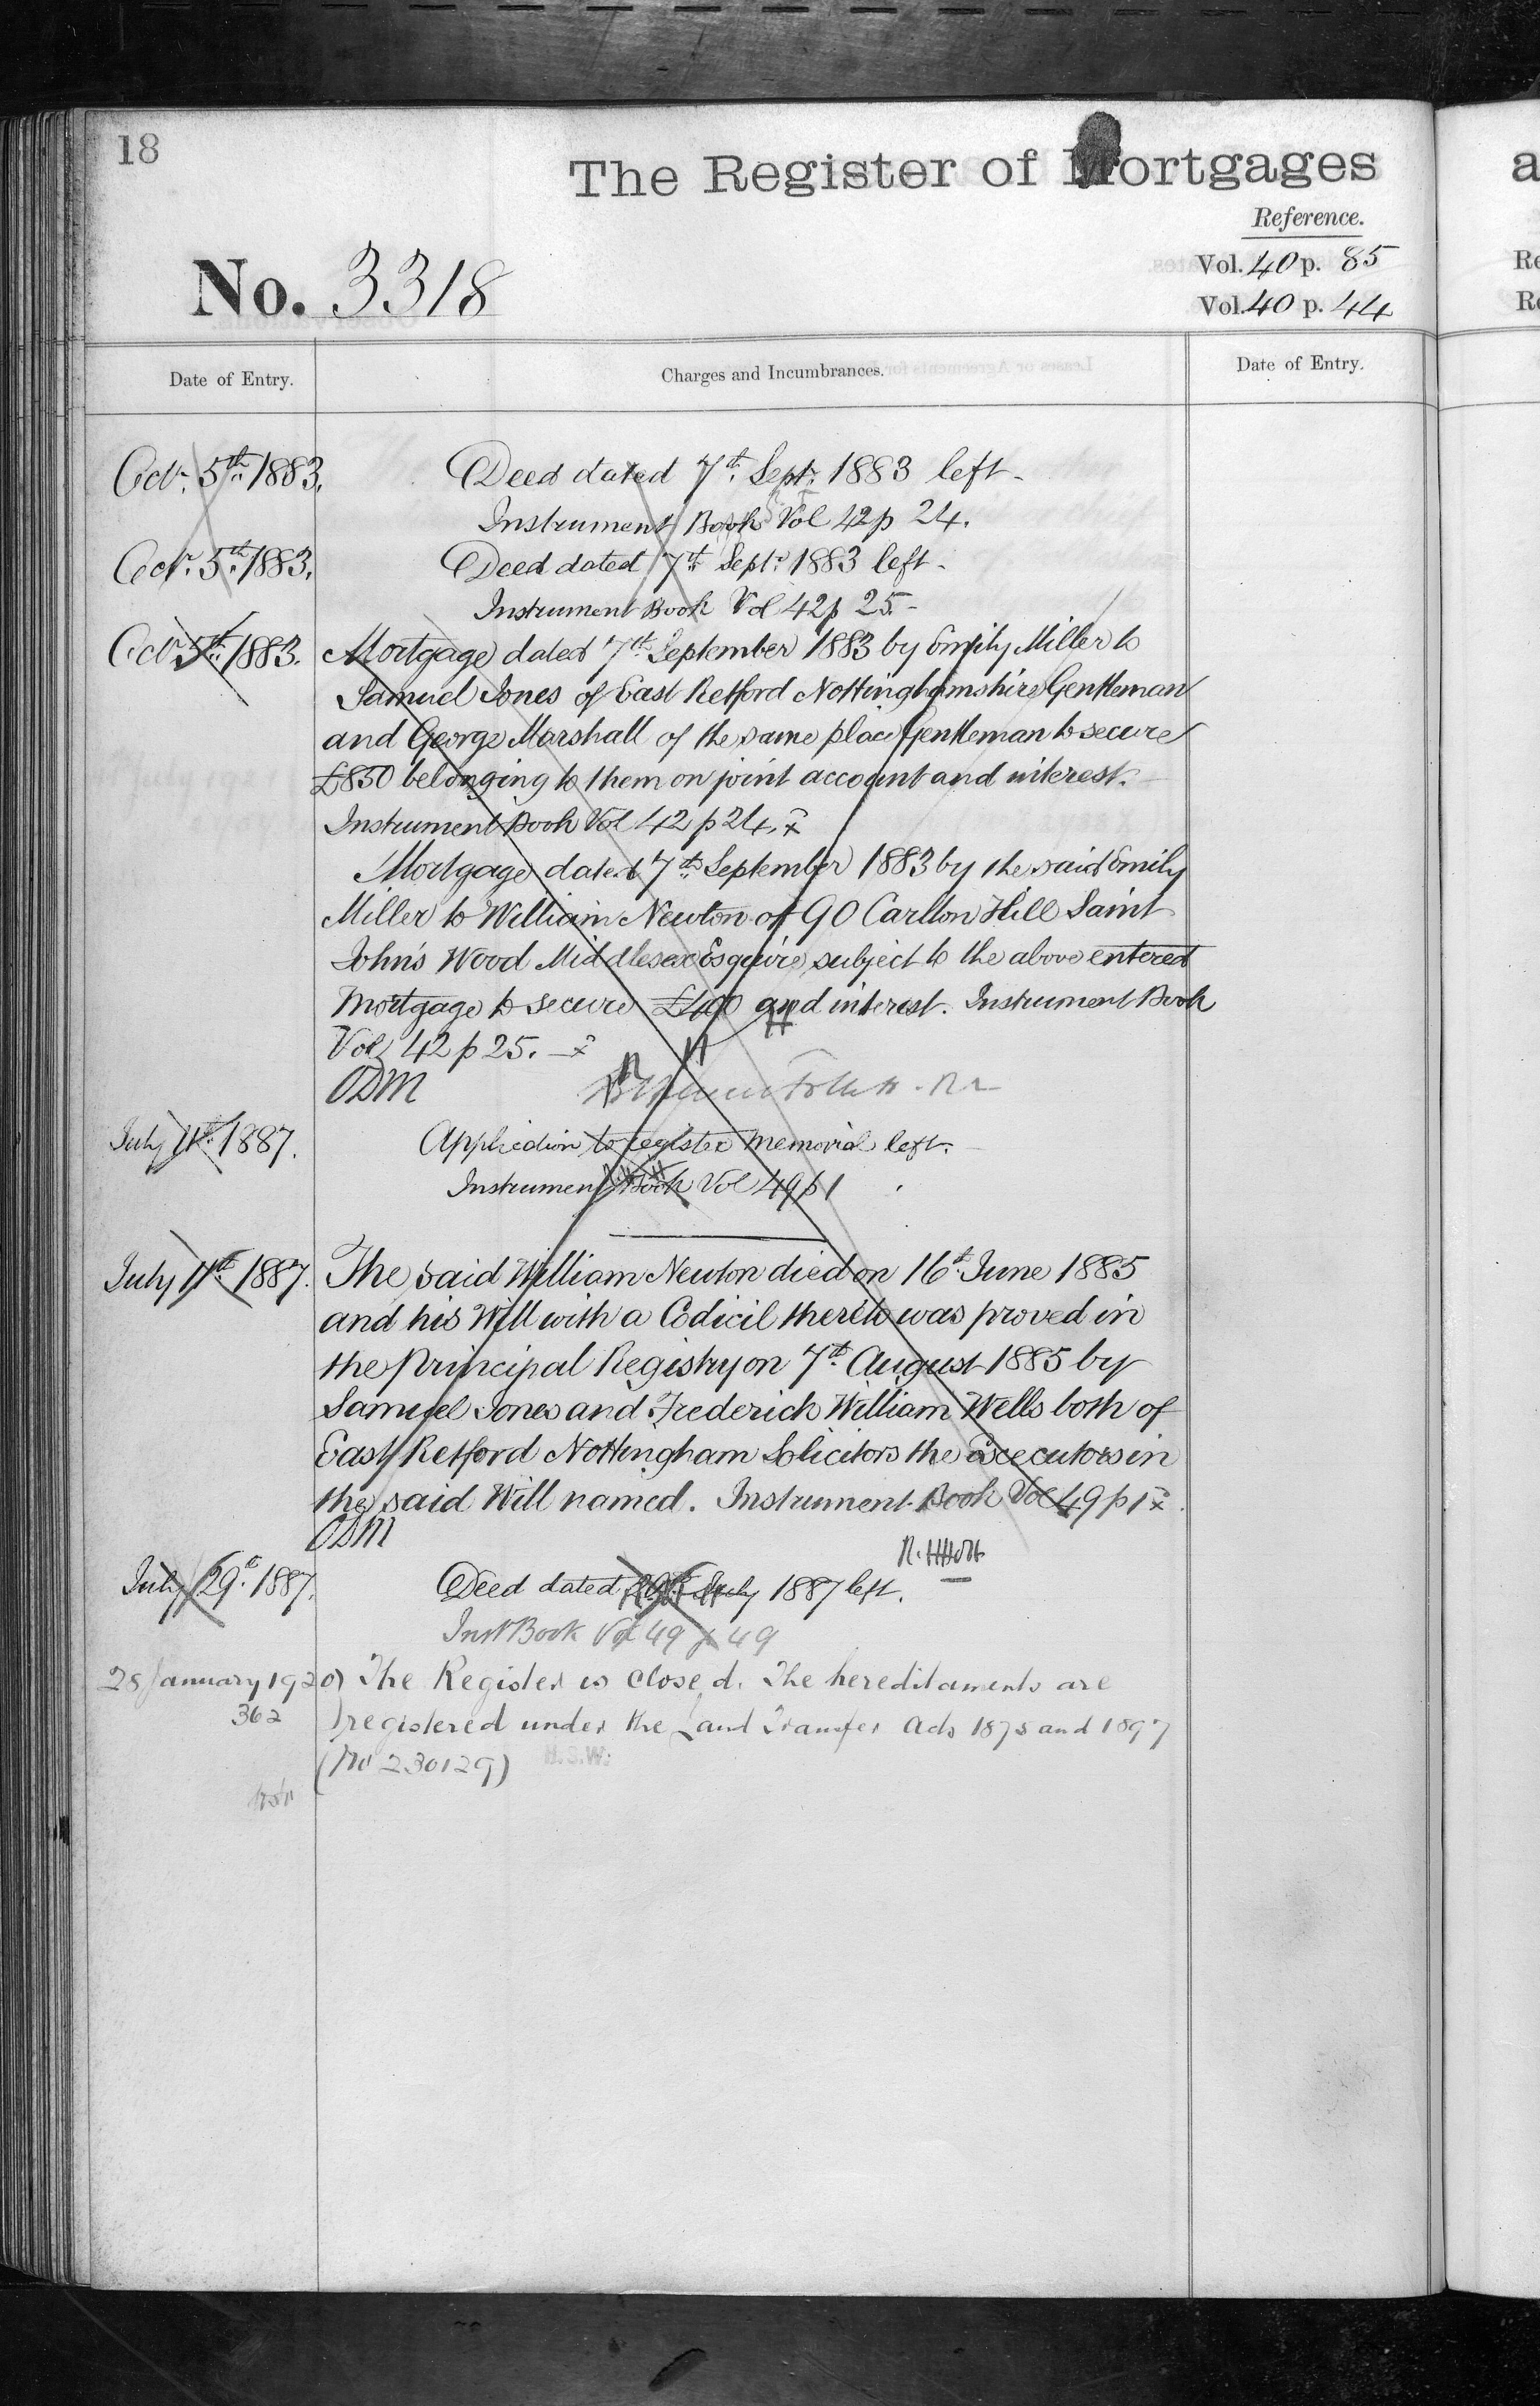 18
The Register of Mortgages
Reference.
No. 3318
Vol. 40 p. 85
Vol. 40 p. 44
Date of Entry.
Charges and Incumbrances.
Date of Entry.
Octr. 5th 1883. Deed dated 7th Septr. 1883 left.
Instrument Book Vol 42 p 24.
Octr. 5th 1883. Deed dated 7th Septr. 1883 left.
Instrument Book Vol 42 p 25.
Octr. 5th 1883. Mortgage dated 7th September 1883 by Emily Miller to
Samuel Jones of East Retford Nottinghamshire Gentleman
and George Marshall of the same place Gentleman to secure
£850 belonging to them on joint account and interest.
Instrument Book Vol 42 p 24.
Mortgage dated 7th September 1883 by the said Emily
Miller to William Newton of 90 Carlton Hill Saint
John's Wood Middlesex Esquire subject to the above entered
Mortgage to secure £400 and interest. Instrument Book
Vol 42 p 25.
ODM
July 11th 1887. Application to register memorial left.
Instrument Book Vol 49 p 1
July 11th 1887. The said William Newton died on 16th June 1885
and his Will with a Codicil thereto was proved in
the Principal Registry on 7th August 1885 by
Samuel Jones and Frederick William Wells both of
East Retford Nottingham Solicitors the Executors in
the said Will named. Instrument Book Vol 49 p 1
ODM
July 29th 1887. Deed dated 29th July 1887 left.
Inst Book Vol 49 p 49
28 January 1920 The Register is closed. The hereditaments are
362 registered under the Land Transfer Acts 1875 and 1897
(No 230129) H.S.W.
a
Re
Re